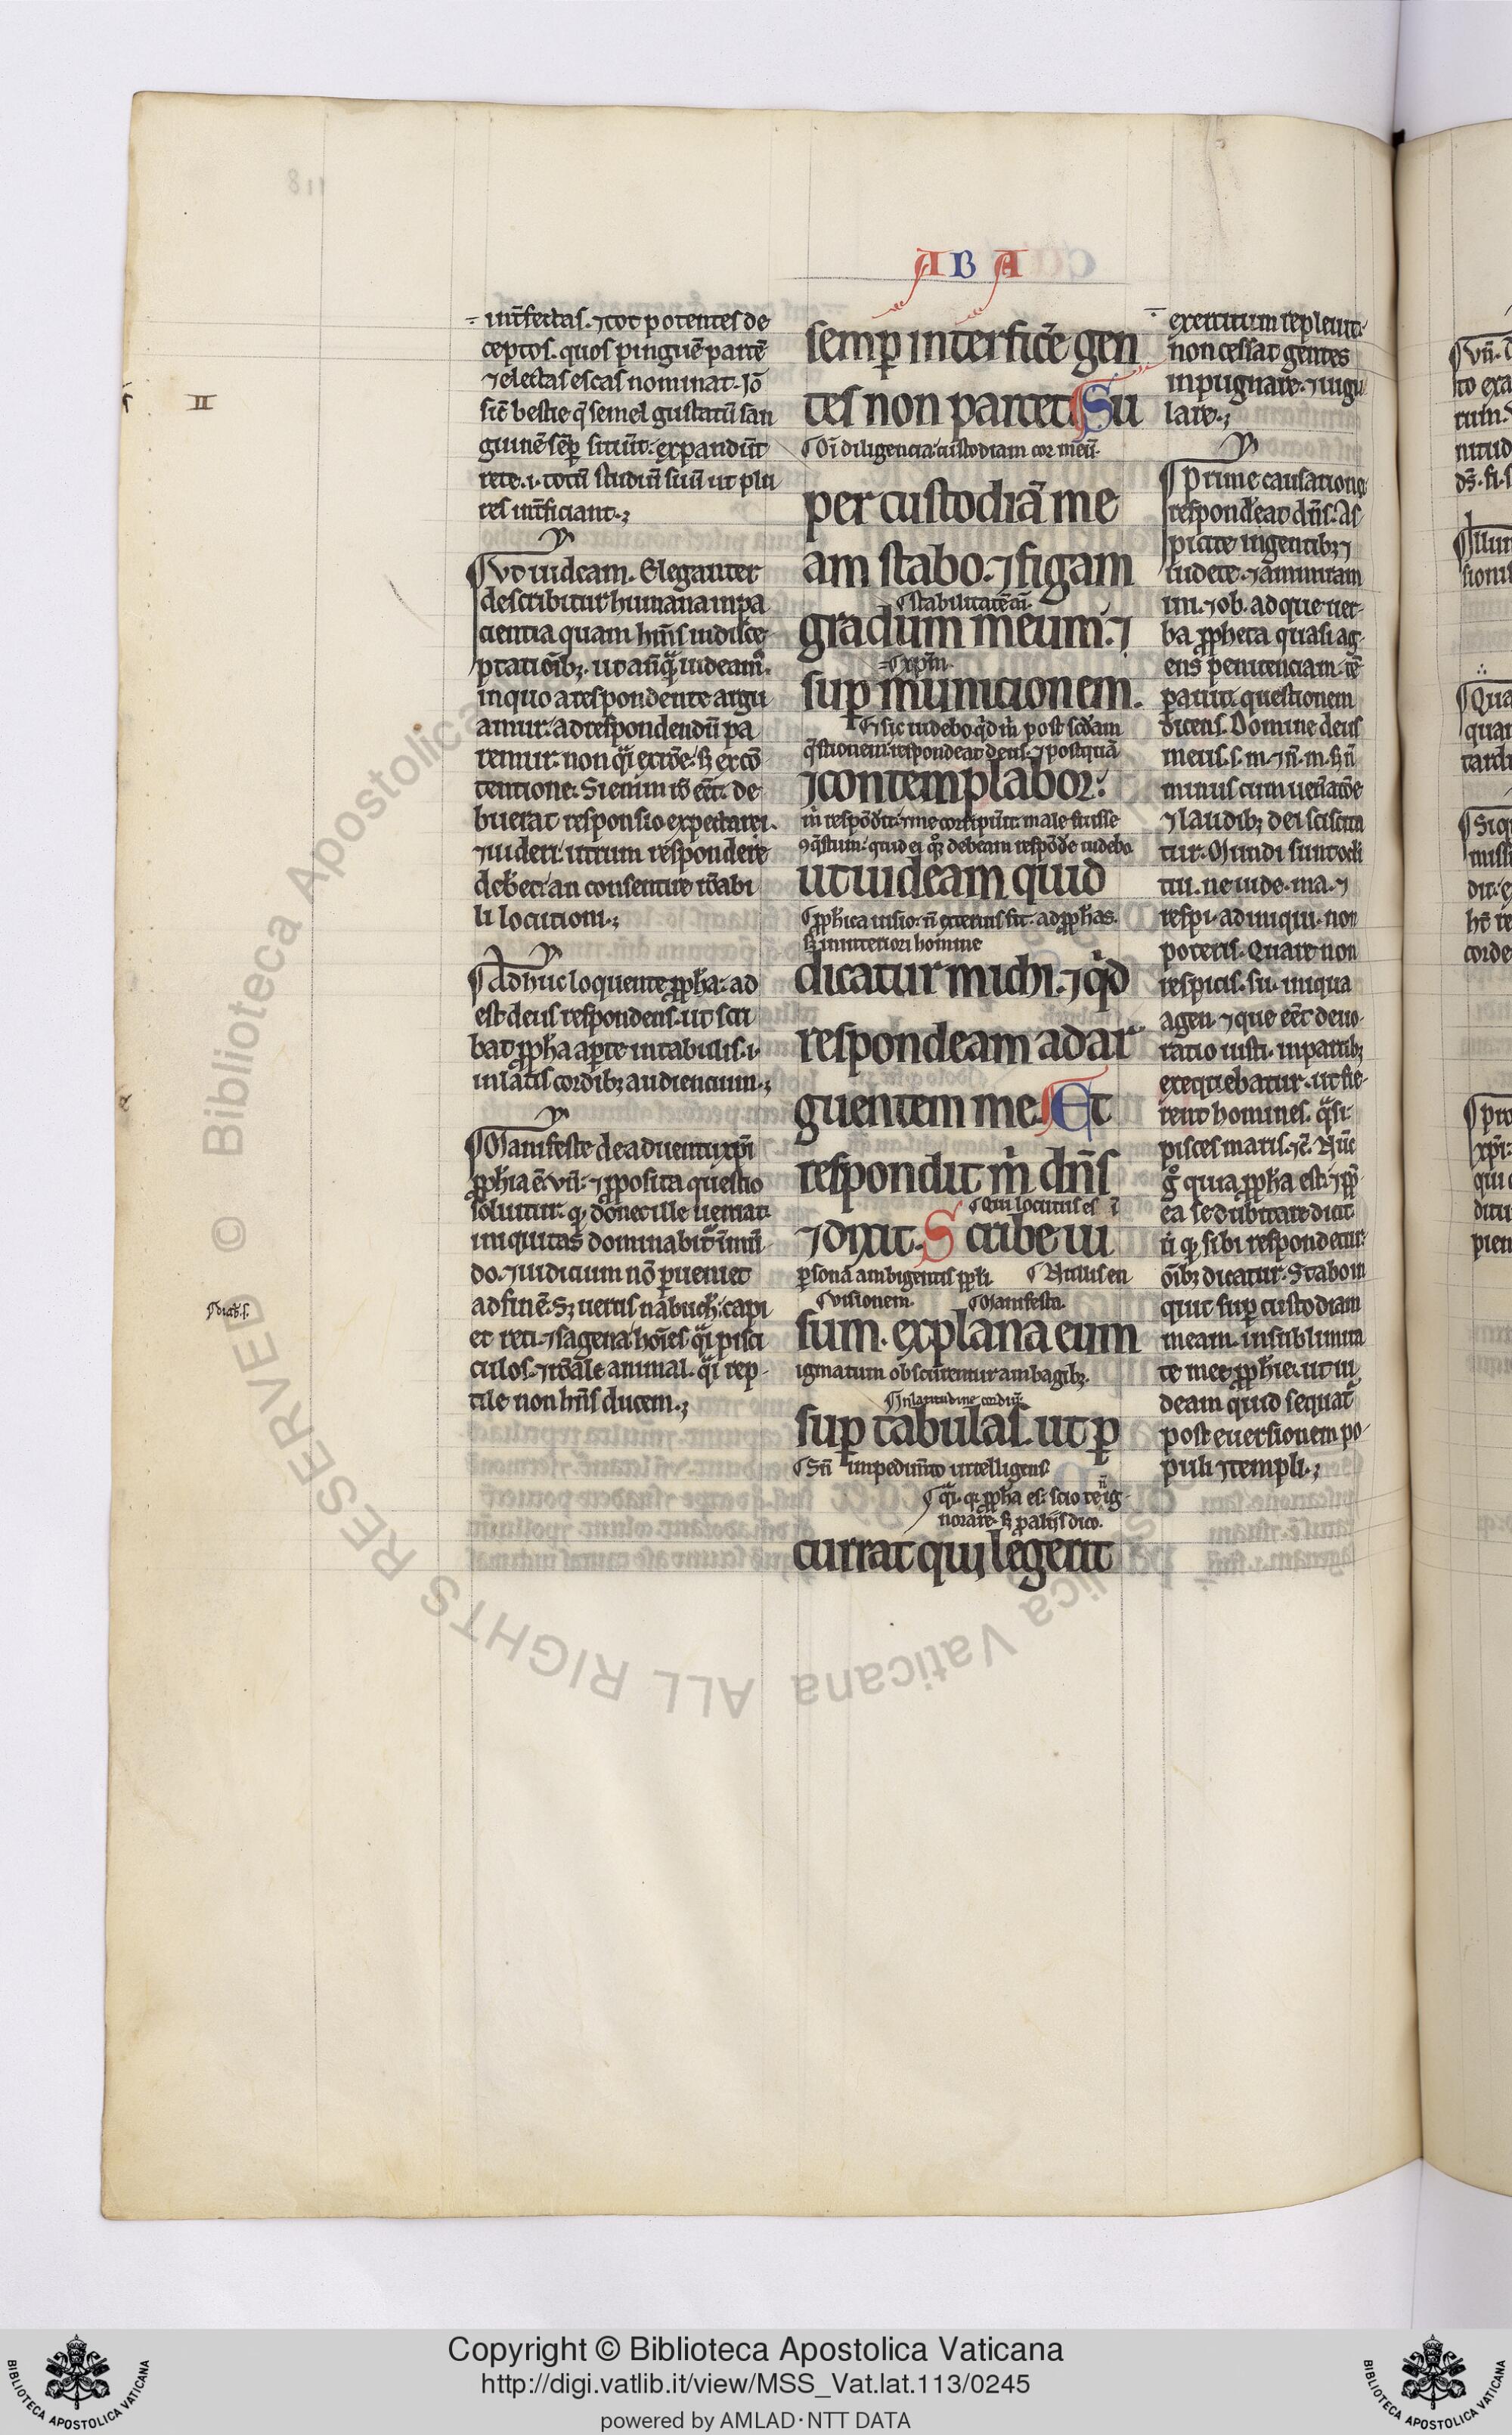 ABA
int̄fectas. ⁊ tot potentes de
ceptos. quos pinguē partē
⁊ electas escas nominat. Iō
sic̄ bestie q̄ semel gustatū san
guinē sēp̄ sitiūt: expandūt
rete .i. totū studiū suū ut plu
res int̄ficiant.;
Vt uideam. Eleganter
describitur humana inpa
cientia quam hm̄s in disce
ptatiōibꝫ. ut anq̄ uideam̄.
in quo a respondente argu
amur: ad respondendū pa
remur: non q̄i exrōe. sꝫ ex cō
tentione. Si enim rō eēt: de
buerat responsio expectari.
⁊ uideri: utrum respondere
deb̄et: an consentire rōabi
li locutioni.;
Adhuc loquente ꝓph̄a: ad
est deus respondens. ut scri
bat ꝓph̄a aꝑte in tabulis .i.
in latis cordibꝫ audiencium.;
Manifeste de aduentu xp̄i
ꝓph̄ia ē. vn̄: ⁊ ꝓposita questio
soluitur. ꝙ donec ille ueniat.
iniquitas dominabit̄ i mū
do. ⁊ iudicium nō ꝑueniet
ad finē. Sꝫ uerus nabuch̄. capi
et reti ⁊ sagena hoīes q̄i pisci
culos. ⁊ rōale animal. q̄i rep
tile non hn̄s ducem.;
II
semꝑ interfice̅ gen
tes non parcet Su
Oi diligencia: custodiam cor meū.
per custodiā me
am stabo. ⁊ figam
stabilitatē
gradum meum. ⁊
xp̄m.
suꝑ municionem.
Et sic uidebo q̄d m̄ post sc̄dam
q̄stionem respondeat deus. ⁊ postquā
⁊ contemplabor.
m̄ respōdit: ⁊ me corripūit male fuisse
ꝯq̄stum: quid ei debeam respōdē uidebo
ut uideam quid
ꝓph̄ica uisio: n̄ exterius fit. ad ꝓph̄as.
sꝫ in interiori homine
dicatur michi. ⁊ q̄d
respondeam ad ar
guentem me. Et
respondit m̄ dn̄s
Qui locutus es ī
⁊ dixit. Scribe ui
ꝑsonā ambigentis ppl̄i. Nullis en
visionem. Manifesta.
sum. explana eum
igmatum obscurentur ambagibꝫ.
In latitudine cordiū.
suꝑ tabulas. ut ꝑ
Sn̄ impedim̄to intelligens
q̄i. q. ꝓph̄a es: scio te n̄ ig
norare. sꝫ ꝓ aliis dico.
currat qui legerit
exercitum repleuit:
non cessat gentes
inpugnare. ⁊ iugu
lare.;
Prime causationi
respondeat dn̄s: As
picite in gentibꝫ ⁊
uidete. ⁊ amiram
im. ⁊ ob. ad que uer
ba ꝓpheta quasi ag
ens penitenciam. tē
ꝑauit questionem
dicens. Domine deus
meus. s. m. ⁊ n̄. m. sꝫ n̄
minus cum uen̄atiōe
⁊ laudibꝫ dei sciscita
tur. Mundi sunt oc̄li
tui. ne uide. ma. ⁊
respi. ad iniqui. non
poteris. Quare non
respicis. su. iniqua
agen. ⁊ que eēt deuo
ratio iusti. in partibꝫ
exequebatur. ut fie
rent homines. q̄si
pisces maris. ⁊c̄. Nūc
g̊ quia ꝓph̄a est: ⁊ ꝓpt̄
ea se dubitare dicit
ꝙ sibi respondetur
oībꝫ dicatur. Stabo in
quit suꝑ custodiam
meam. in sublimita
te mee ꝓph̄ie. ut ui
deam quid sequat̄
post euersionem po
puli ⁊ templi.;
Copyright © Biblioteca Apostolica Vaticana
http://digi.vatlib.it/view/MSS_Vat.lat.113/0245
powered by AMLAD·NTT DATA